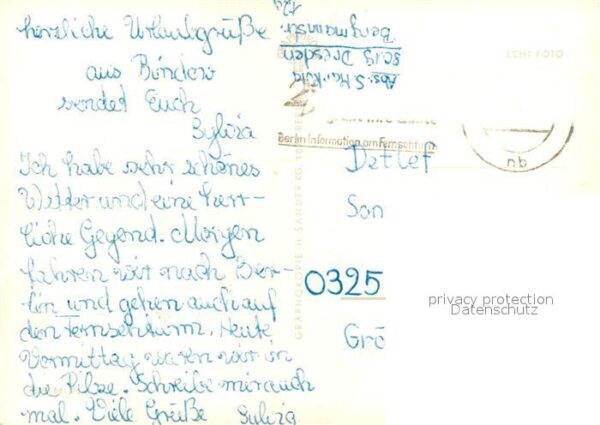 herzliche Urlaubsgrüße
aus Bindow
sendet Euch
Sylvia
Ich habe sehr schönes
Wetter und eine herr-
liche Gegend. Morgen
fahren wir nach Ber-
lin und gehen auch auf
den Fernsehturm. Heute
Vormittag waren wir in
die Pilze. Schreibe mir auch
mal. Viele Grüße Sylvia
Abs: S.
8019 Dresden
Bergmannstr.
12a
ECHT FOTO
Berlin Information am Fernsehturm
nb
Detlef
Son
0325
Grö
privacy protection
Datenschutz